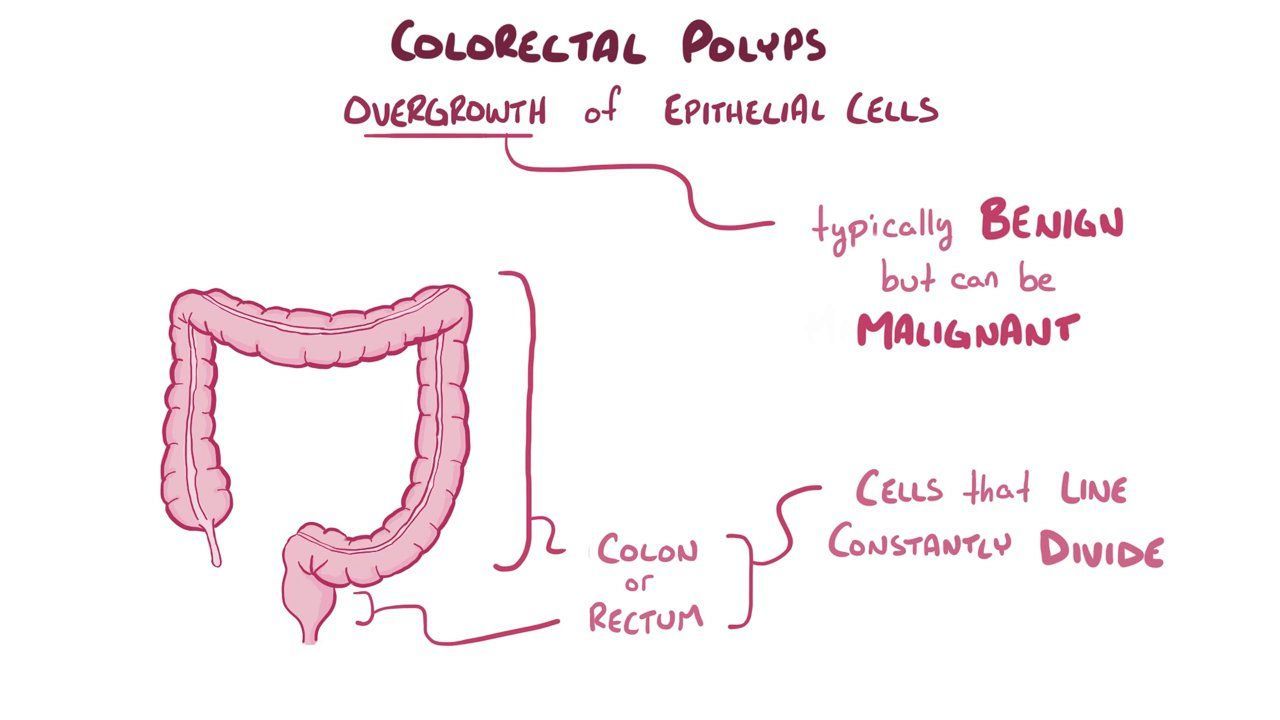 COLORECTAL POLYPS
OVERGROWTH of EPITHELIAL CELLS
typically BENIGN
but can be
MALIGNANT
CELLS that LINE
CONSTANTLY DIVIDE
COLON
or
RECTUM